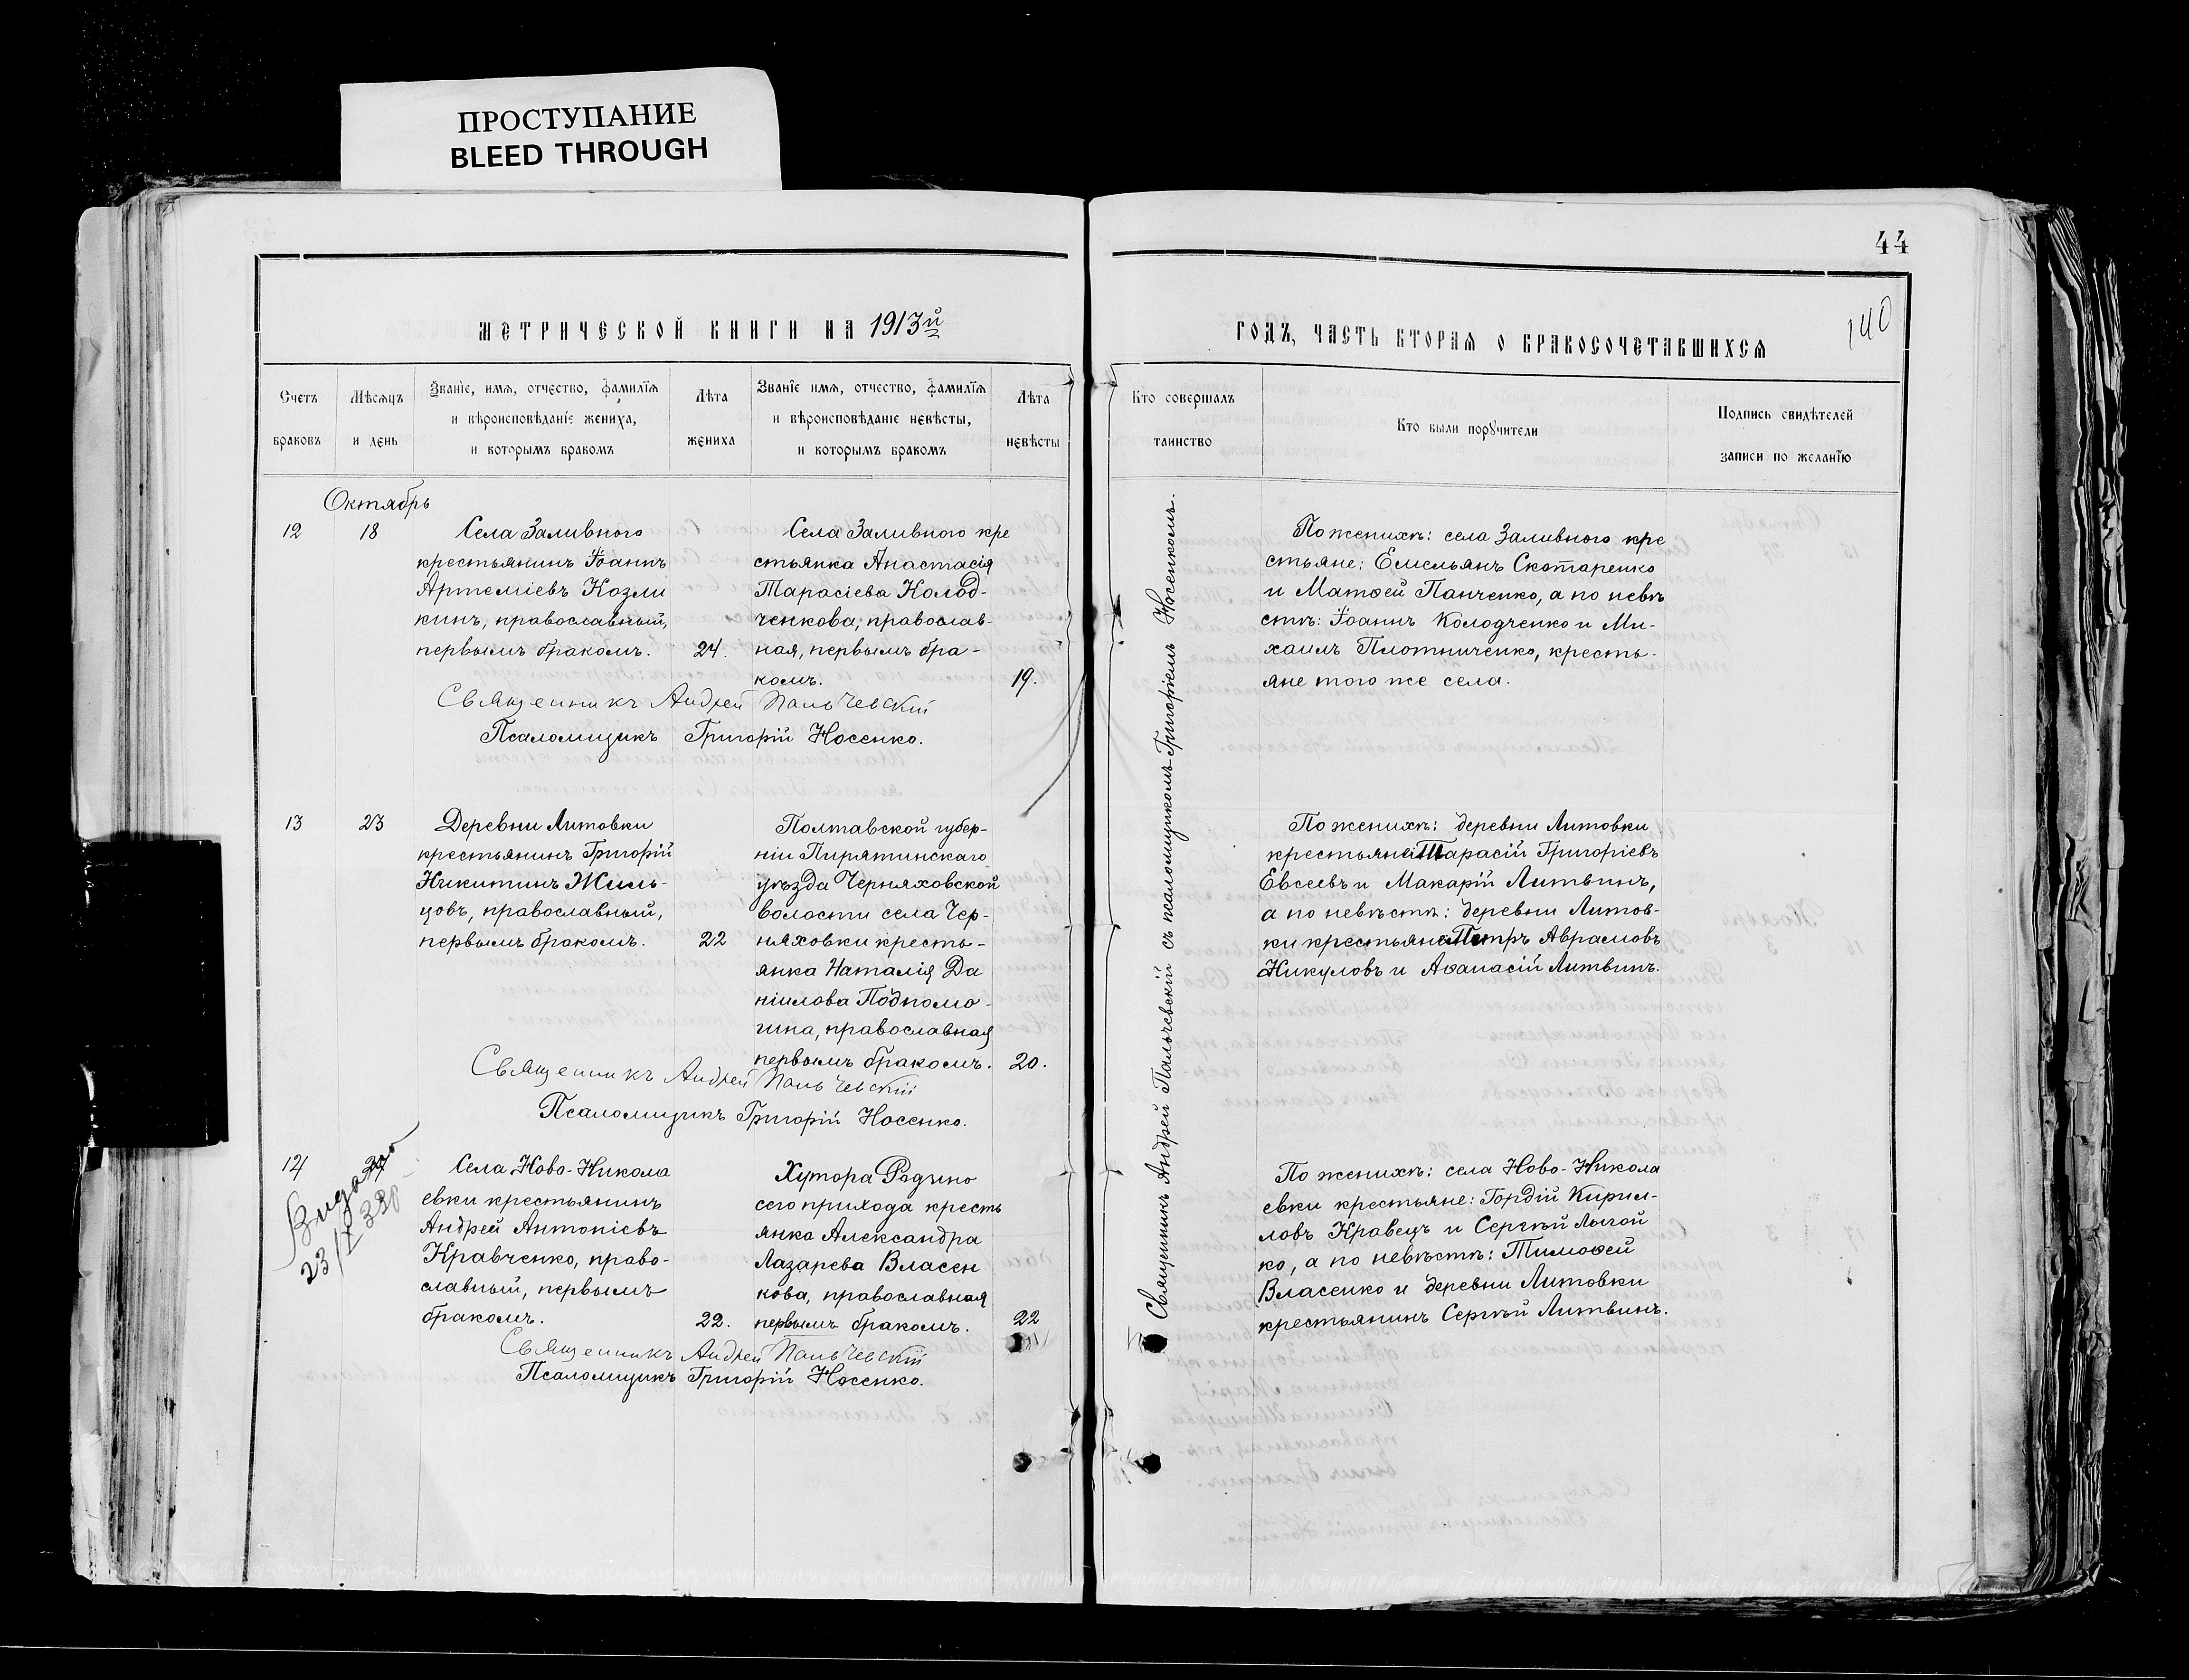 ПРОСТУПАНИЕ
BLEED THROUGH
44
140
МЕТРИЧЕСКОЙ КНИГИ НА 1913й
ГОДЪ, ЧАСТЬ ВТОРАЯ О БРАКОСОЧЕТАВШИХСЯ
Счетъ
браковъ
Мѣсяцъ
и день
Званіе, имя, отчество, фамилія
и вѣроисповѣданіе жениха,
и которымъ бракомъ
Лѣта
жениха
Званіе имя, отчество, фамилія
и вѣроисповѣданіе невѣсты,
и которымъ бракомъ
Лѣта
невѣсты
Кто совершалъ
таинство
Кто были поручители
Подпись свидѣтелей
записи по желанію
Октябрь
12
18
Села Заливного
крестьянинъ Іоаннъ
Артеміевъ Козли
кинъ, православный,
первымъ бракомъ.
24.
Села Заливного кре
стьянка Анастасія
Тарасіева Колод-
ченкова, православ-
ная, первымъ бра-
комъ.
19.
Священникъ Андрей Пальчевскій
Псаломщикъ Григорій Носенко.
По женихѣ: села Заливного кре
стьяне: Емельянъ Скотаренко
и Матѳей Панченко, а по невѣ
стѣ: Іоаннъ Колодченко и Ми-
хаилъ Плотниченко, кресть-
яне того же села.
13
23
Деревни Литовки
крестьянинъ Григорій
Никитинъ Жиль-
цовъ, православный,
первымъ бракомъ.
22
Полтавской губер-
ніи Пирятинскаго
уѣзда Черняховской
волости села Чер-
няховки кресть-
янка Наталія Да
ніилова Подпомо-
гина, православная
первымъ бракомъ.
20.
Священникъ Андрей Пальчевскій
Псаломщикъ Григорій Носенко.
По женихѣ: деревни Литовки
крестьяне: Тарасій Григоріевъ
Евсеевъ и Макарій Литвинъ,
а по невѣстѣ: деревни Литов-
ки крестьяне: Петръ Аврамовъ
Никуловъ и Аѳанасій Литвинъ.
14
Видано
23/X
Села Ново-Никола
евки крестьянинъ
Андрей Антоніевъ
Кравченко, право-
славный, первымъ
бракомъ.
22.
Хутора Родзино
сего прихода кресть
янка Александра
Лазарева Власен
кова, православная
первымъ бракомъ.
22
Священникъ Андрей Пальчевскій
Псаломщикъ Григорій Носенко.
По женихѣ: села Ново-Никола
евки крестьяне: Гордій Кирил-
ловъ Кравецъ и Сергѣй Лысой
ко, а по невѣстѣ: Тимоѳей
Власенко и деревни Литовки
крестьянинъ Сергѣй Литвинъ.
Священникъ Андрей Пальчевскій съ псаломщикомъ Григоріемъ Носенкомъ.